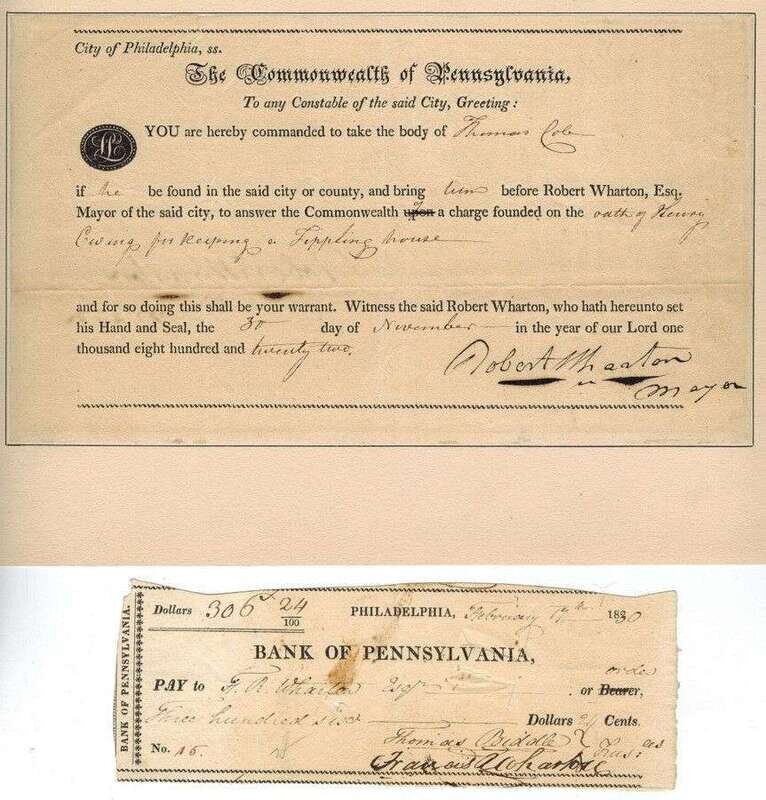 City of Philadelphia, ss.
The Commonwealth of Pennsylvania,
To any Constable of the said City, Greeting:
YOU are hereby commanded to take the body of Thomas Cole
if he be found in the said city or county, and bring him before Robert Wharton, Esq.
Mayor of the said city, to answer the Commonwealth upon a charge founded on the oath of Henry
Ewing for keeping a Tippling house
and for so doing this shall be your warrant. Witness the said Robert Wharton, who hath hereunto set
his Hand and Seal, the 30 day of November in the year of our Lord one
thousand eight hundred and twenty two.
Robert Wharton
Mayor
BANK OF PENNSYLVANIA.
Dollars 306 24/100 PHILADELPHIA, February 17th 1830
BANK OF PENNSYLVANIA,
order
PAY to F. R. Wharton Esqr or Bearer,
Three hundred six Dollars 24 Cents.
No. 15. Thomas Biddle
Francis R Wharton